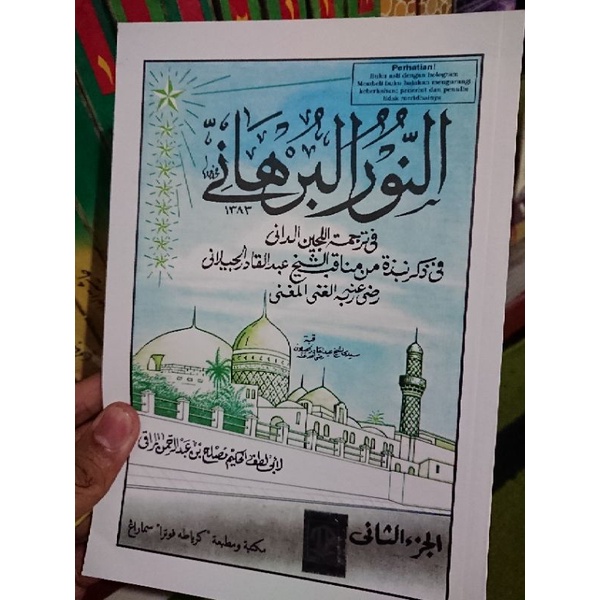 Perhatian!
Buku asli dengan hologram
Membeli buku bajakan mengurangi
keberkahan; penerbit dan penulis
tidak meridhoinya
النُّورُ البُرْهَانِيّ
١٣٨٣
فى ترجمة اللجين الدانى
فى ذكر نبذة من مناقب الشيخ عبد القادر الجيلانى
رضى عنه ربه الغنى المغنى
قبة
سيدى الشيخ عبد القادر الجيلانى
لأبى لطف الحكيم مصلح بن عبد الرحمن المراقى
الجزء الثانى
مكتبة ومطبعة "كرياطه فوترا" سماراغ